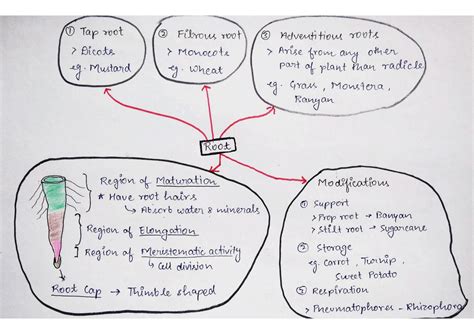 ① Tap root
> Dicots
eg. Mustard
② Fibrous root
> Monocots
eg. Wheat
③ Adventitious roots
> Arise from any other
part of plant than radicle
eg. Grass, Monstera,
Banyan
Root
Region of Maturation
* Have root hairs
↳ Absorb water & minerals
Region of Elongation
Region of Meristematic activity
↳ Cell division
Root Cap → Thimble shaped
Modifications
① Support
> Prop root → Banyan
> Stilt root → Sugarcane
② Storage
eg. Carrot, Turnip,
Sweet Potato
③ Respiration
> Pneumatophores - Rhizophora